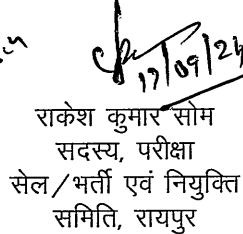 17/09/24
राकेश कुमार सोम
सदस्य, परीक्षा
सेल/भर्ती एवं नियुक्ति
समिति, रायपुर